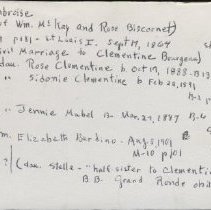 mbroise
of Wm. McKay and Rose Biscornet)
p181 - St Louis I. Sept 17, 1867
Civil Marriage to Clementine Bourgeau)
dau. Rose Clementine b. Oct 19, 1888 - B
" Sidonie Clementine b Feb 28, 1891
" Jennie Mabel B. Mar. 27, 1887 B-4
m. Elizabeth Bandino - Aug 5, 1901
M-10 p 101
? (dau. Stella - "half-sister to Clementi
B.B. Grand Ronde obit